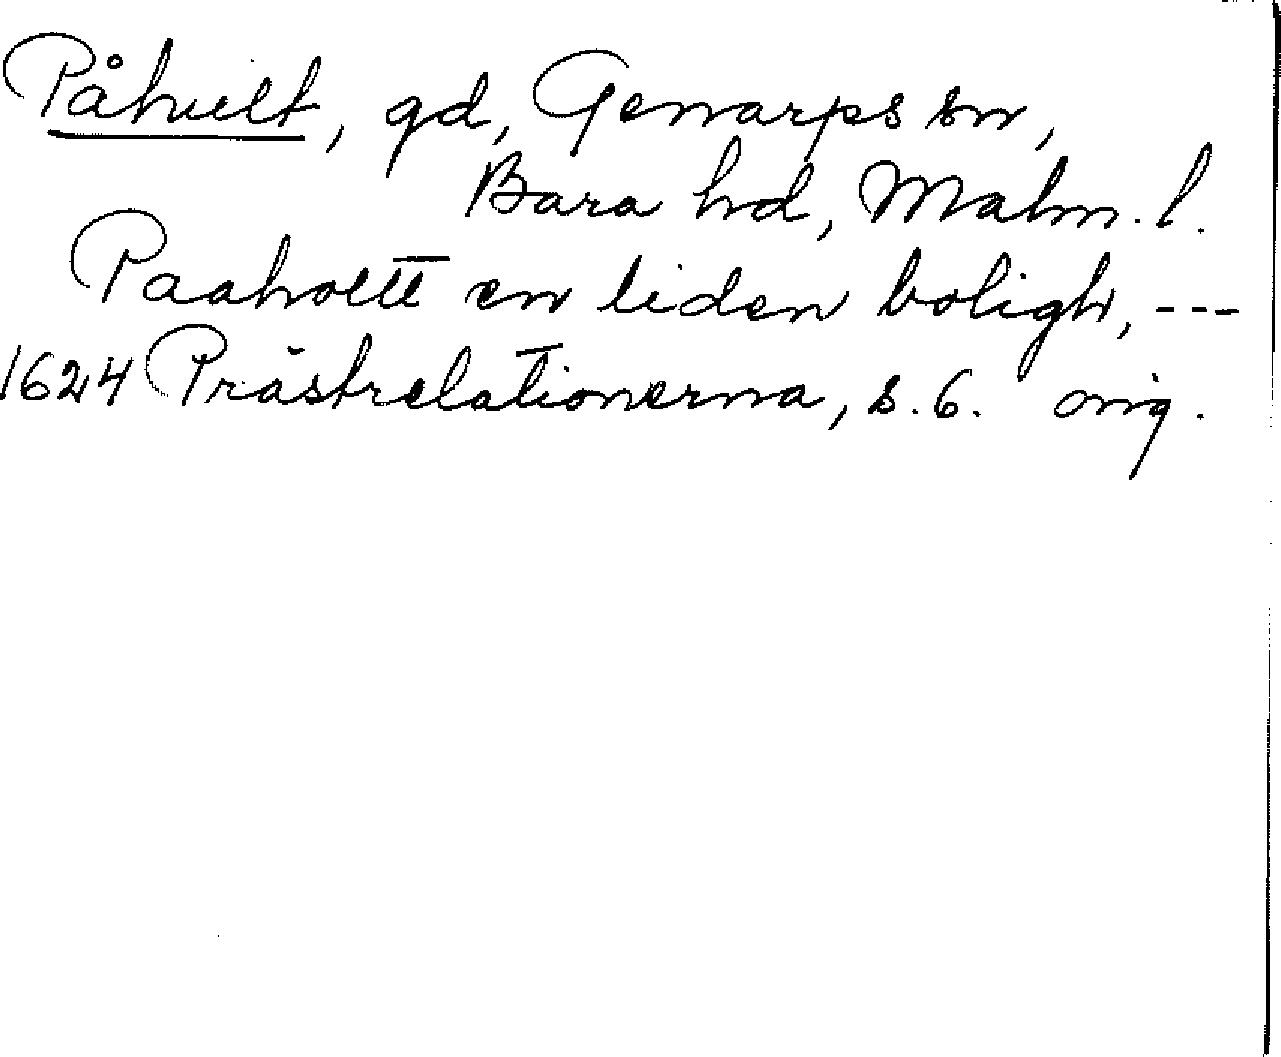 Påhvelt, gd, Genarps sn,
Bara hd, Malm. l.
Paaholtt en liden boligh, ---
1624 Prästrelationerna, s. 6. orig.